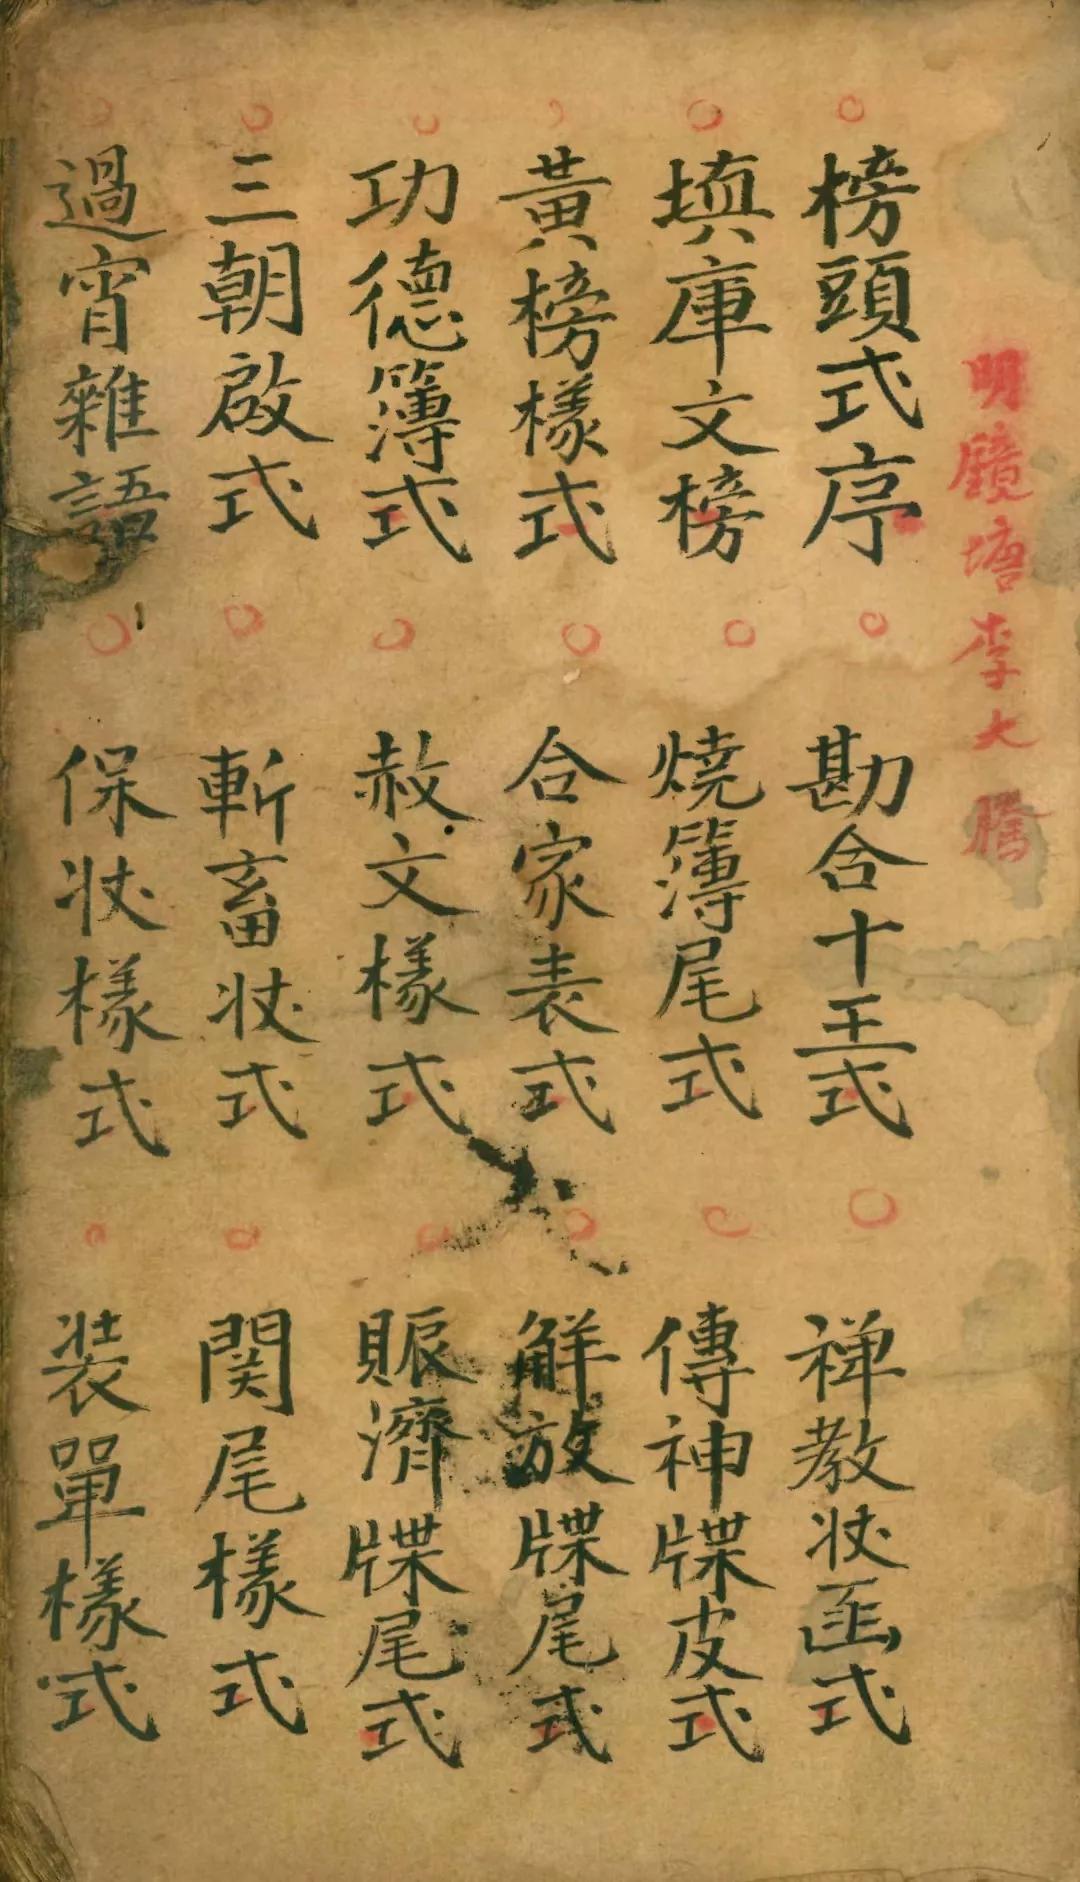 明鏡塘李大騰
榜頭式序
勘合十王式
禅教状函式
填庫文榜
燒簿尾式
傳神牒皮式
黃榜樣式
合家表式
觧放牒尾式
功德簿式
赦文樣式
賑濟牒尾式
三朝啟式
斬畜状式
関尾樣式
過宵雜語
保状樣式
装單樣式